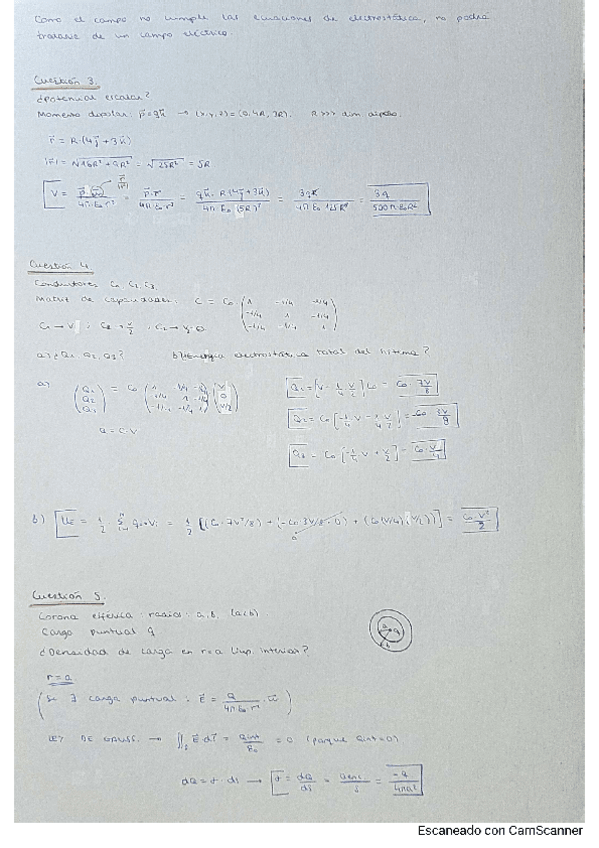 Como el campo no cumple las ecuaciones de electrostática, no podrá
tratarse de un campo eléctrico.
Cuestión 3.
¿Potencial escalar?
Momento dipolar: p⃗ = qk⃗ → (x,y,z) = (0,4R,3R). R>>> dim dipolo.
r⃗ = R·(4j⃗ + 3k⃗)
|r⃗| = √16R² + 9R² = √25R² = 5R
= p⃗·r⃗ / 4π·ε₀·r³ = qk⃗·R(4j⃗+3k⃗) / 4π·ε₀·(5R)³ = 3qR / 4π·ε₀·125R³ = 3q / 500π·ε₀R²
Cuestión 4.
Conductores C₁, C₂, C₃
Matriz de capacidades: C = C₀ (1 -1/4 -1/4
-1/4 1 -1/4
-1/4 -1/4 1)
a) ¿Q₁, Q₂, Q₃? b) ¿Energía electrostática total del sistema?
a) (Q₁ Q₂ Q₃) = C₀ (V 0 V/2)
Q₁ = [V - 1/4 V/2] C₀ = C₀·7V/8
Q₂ = C₀ [-1/4 V - 1/4 V/2] = -C₀ 3V/8
Q = C·V
Q₃ = C₀ [-1/4 V + V/2] = C₀·V/4
b) = 1/2 Σ Qi·Vi = 1/2 [(C₀·7V²/8) + (-C₀ 3V/8·0) + (C₀(V/4)(V/2))] = C₀·V²/2
Cuestión 5.
Corona esférica radios: a, b. (a<b).
Carga puntual q
¿Densidad de carga en r=a (sup. interior)?
r=a
(Si ∃ carga puntual: E⃗ = Q / 4π·ε₀·r² · u⃗)
LEY DE GAUSS. → ∬ E⃗ ds⃗ = Qint / ε₀ = 0 (porque Qint=0)
dQ = σ·ds → σ = dQ/ds = Qenc/S = -q / 4πa²
Escaneado con CamScanner